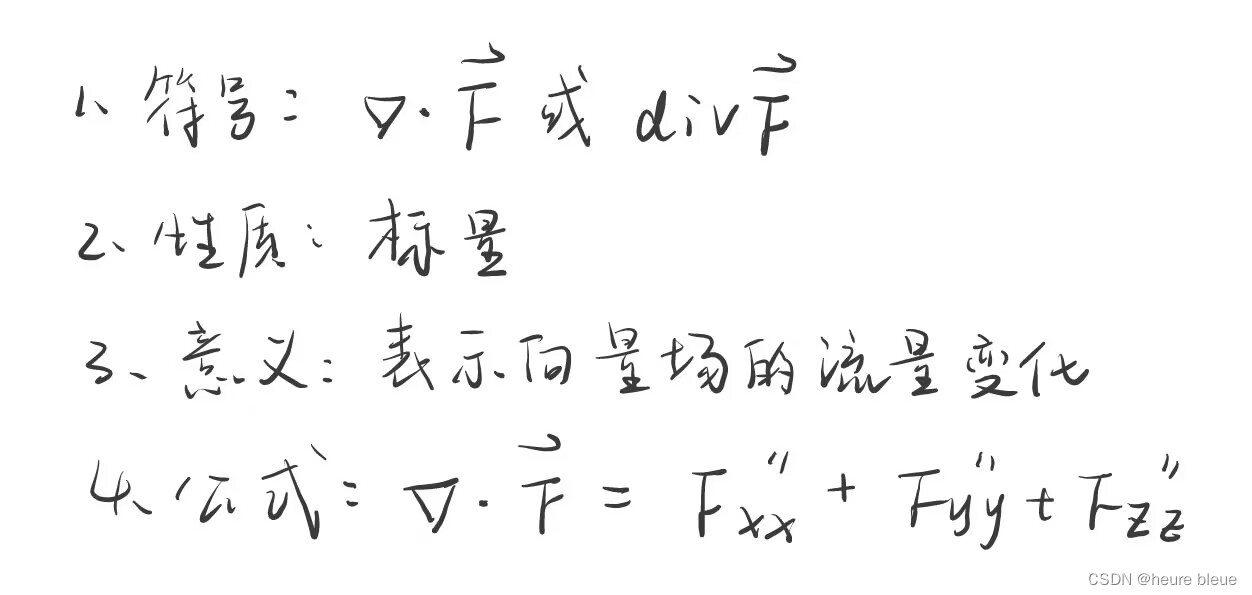 1、符号：∇·F⃗ 或 divF⃗
2、性质：标量
3、意义：表示向量场的流量变化
4、公式：∇·F⃗ = F''xx + F''yy + F''zz
CSDN @heure bleue